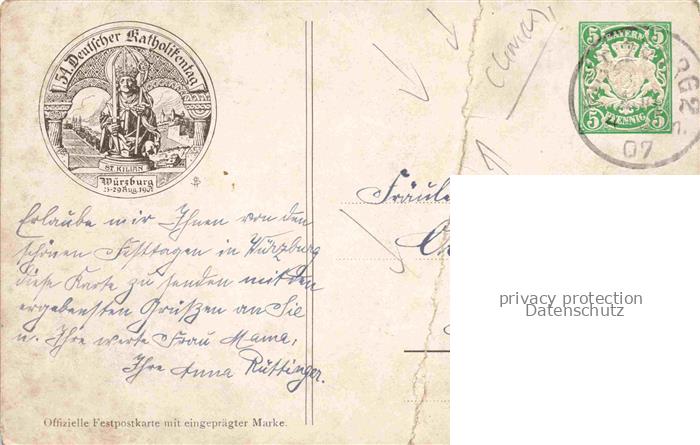 54. Deutscher Katholikentag
ST. KILIAN
Würzburg
25-29 Aug. 1907
BAYERN
5 5
5 PFENNIG 5
07
Fräulei
privacy protection
Datenschutz
Erlaube mir Ihnen von den
schönen Festtagen in Würzburg
diese Karte zu senden mit den
ergebensten Grüßen an Sie
u. Ihre werte Frau Mama,
Ihre Anna Rüttinger.
Offizielle Festpostkarte mit eingeprägter Marke.